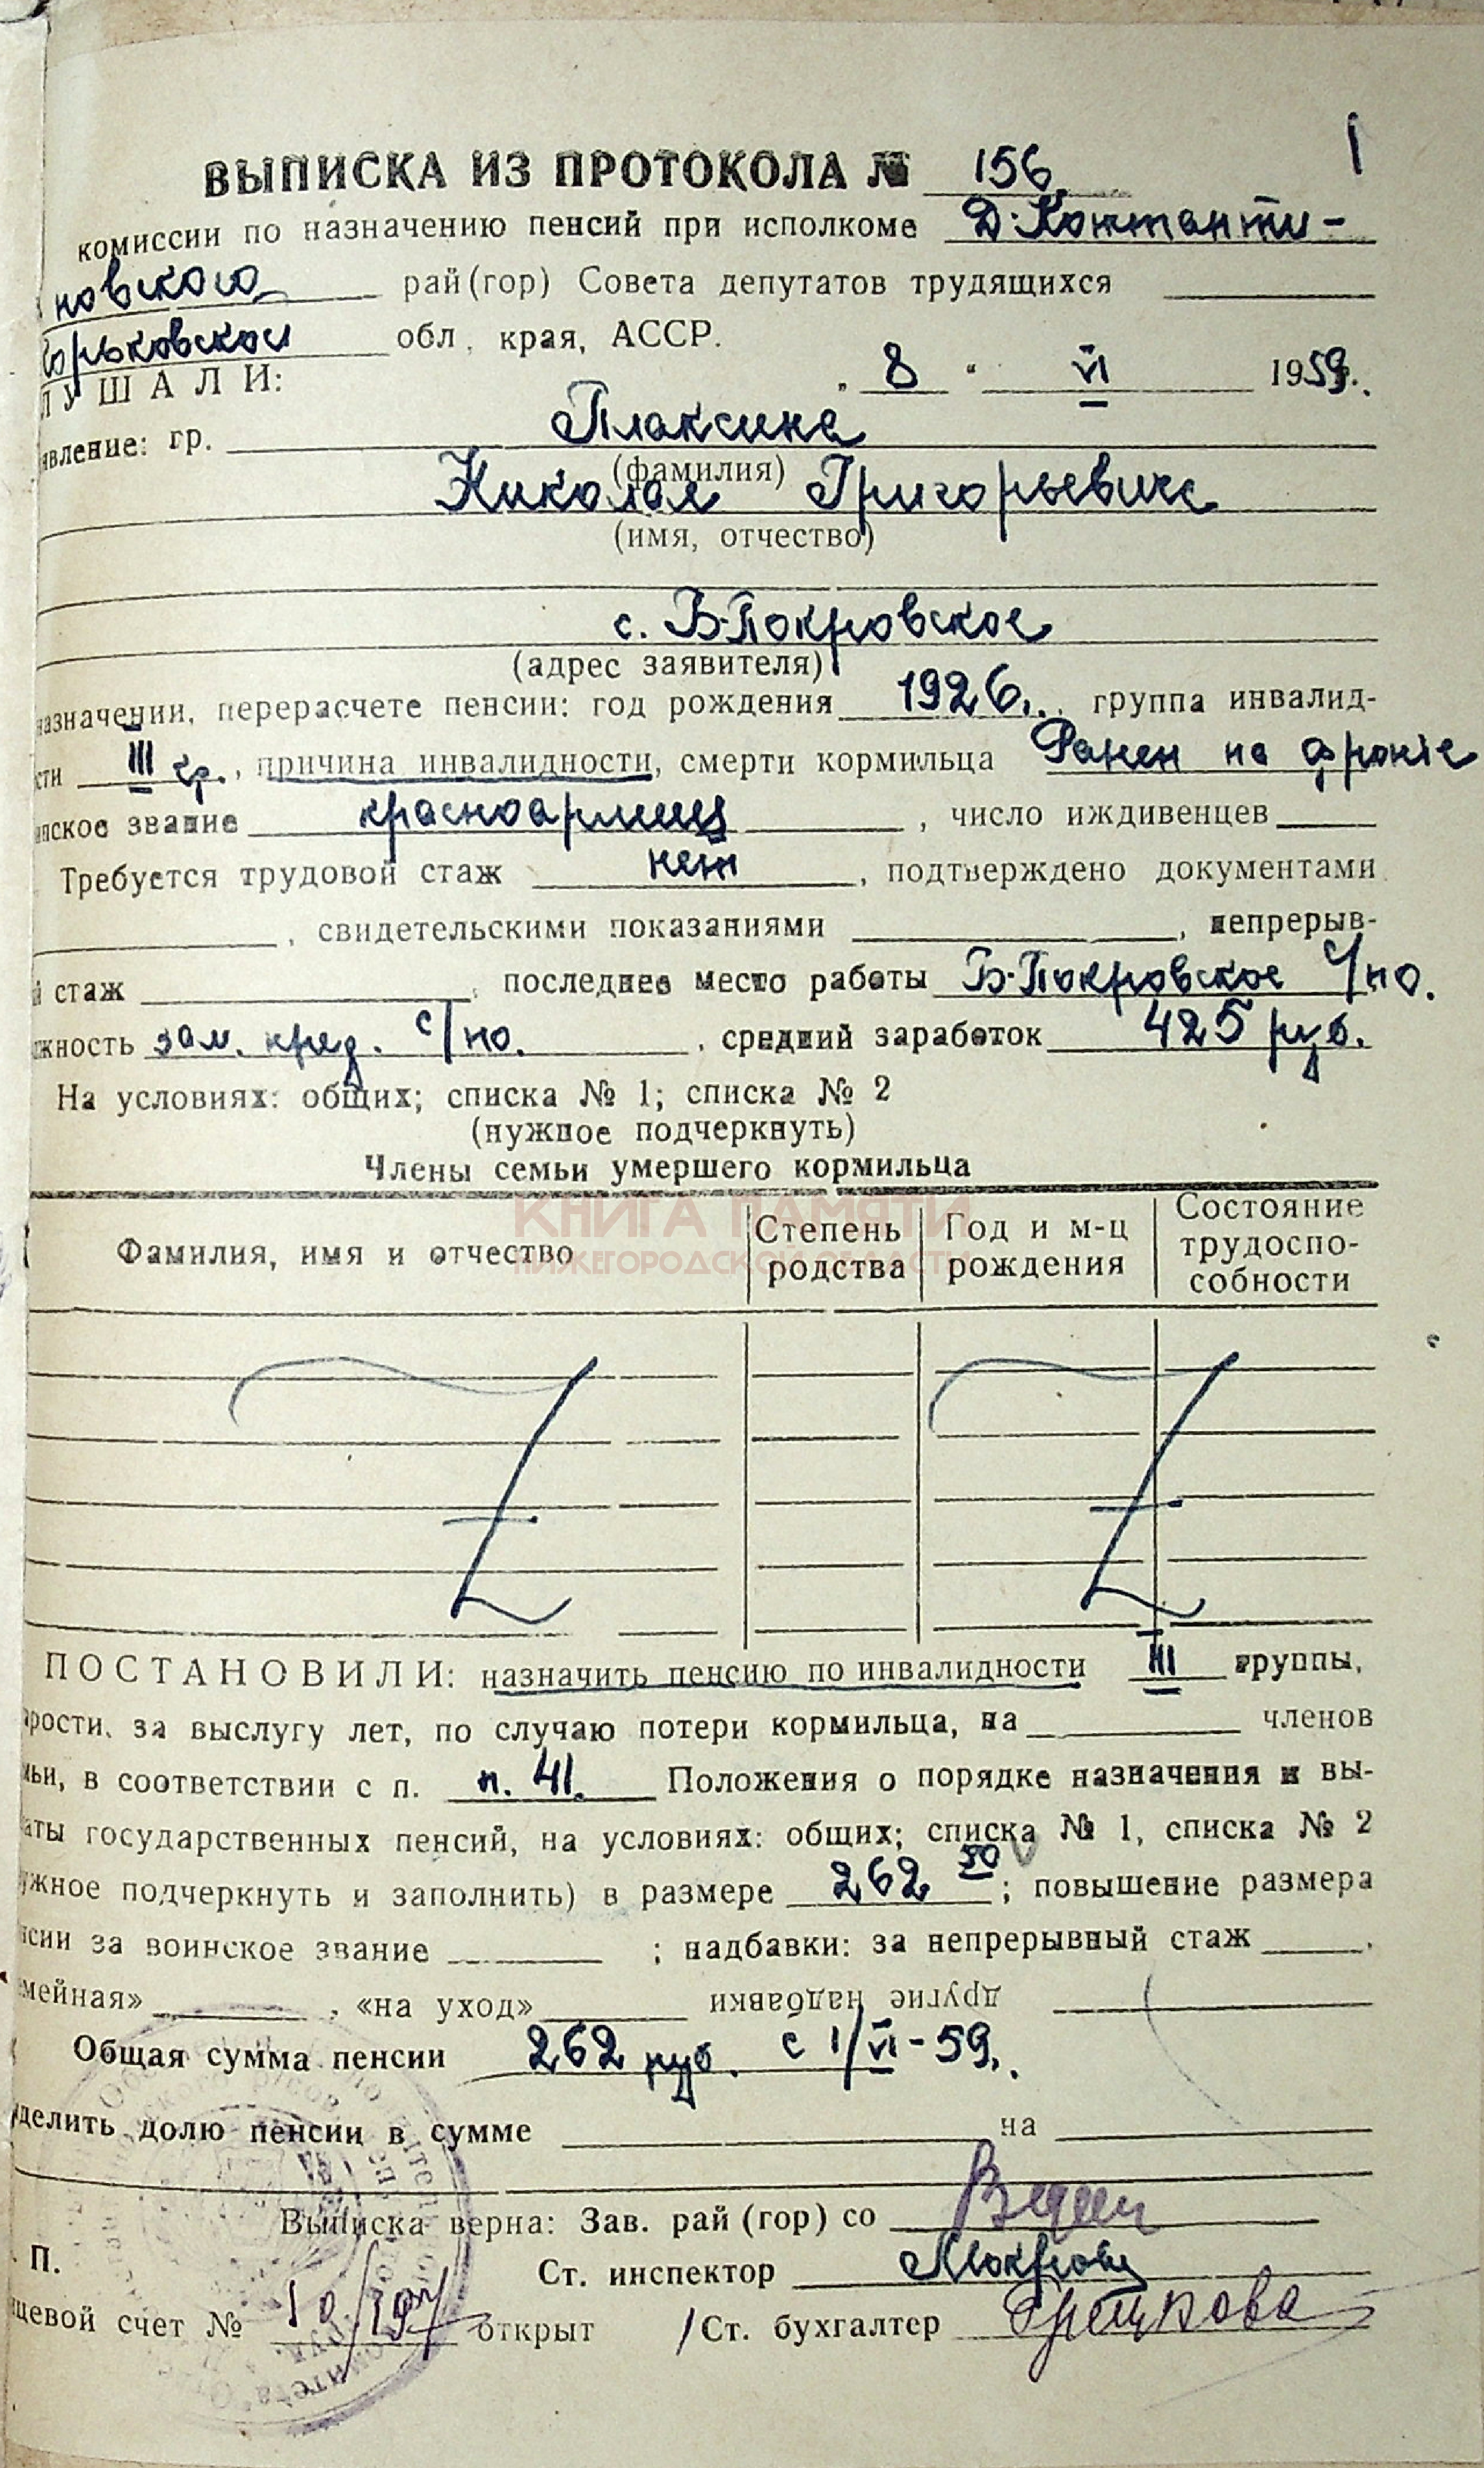 1
ВЫПИСКА ИЗ ПРОТОКОЛА № 156.
комиссии по назначению пенсий при исполкоме Д-Константи-
новского рай(гор) Совета депутатов трудящихся
Горьковской обл, края, АССР.
ЛУШАЛИ:
„ 8 “ VI 1959г.
явление: гр. Плаксина
(фамилия)
Николая Григорьевича
(имя, отчество)
с. Б-Покровское
(адрес заявителя)
назначении, перерасчете пенсии: год рождения 1926г., группа инвалид-
сти III гр., причина инвалидности, смерти кормильца Ранен на фронте
инское звание красноармеец, число иждивенцев
Требуется трудовой стаж нет, подтверждено документами
, свидетельскими показаниями , непрерыв-
й стаж , последнее место работы Б-Покровское с/по.
жность зам. пред. с/по. , средний заработок 425 руб.
На условиях: общих; списка № 1; списка № 2
(нужное подчеркнуть)
Члены семьи умершего кормильца
КНИГА ПАМЯТИ
НИЖЕГОРОДСКОЙ ОБЛАСТИ
Фамилия, имя и отчество Степень родства Год и м-ц рождения Состояние трудоспо-собности
ПОСТАНОВИЛИ: назначить пенсию по инвалидности III группы,
арости, за выслугу лет, по случаю потери кормильца, на членов
мьи, в соответствии с п. п. 41. Положения о порядке назначения и вы-
латы государственных пенсий, на условиях: общих; списка № 1, списка № 2
ужное подчеркнуть и заполнить) в размере 262 50; повышение размера
нсии за воинское звание ; надбавки: за непрерывный стаж ,
емейная» , «на уход» другие надбавки
Общая сумма пенсии 262 руб. с 1/VI-59.
делить долю пенсии в сумме на
Выписка верна: Зав. рай (гор) со
П.
Ст. инспектор
цевой счет № открыт /Ст. бухгалтер